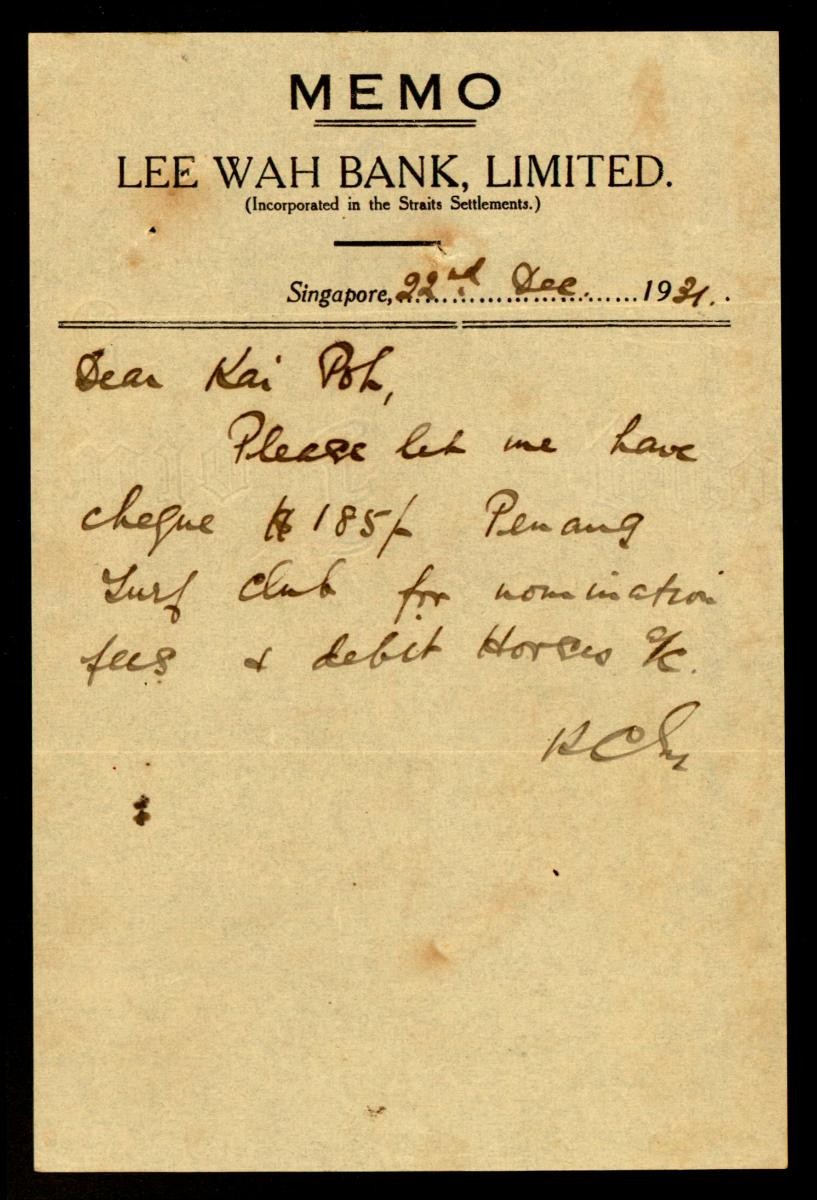 MEMO
LEE WAH BANK, LIMITED.
(Incorporated in the Straits Settlements.)
Singapore, 22nd Dec. 1931.
Dear Kai Poh,
Please let me have
cheque $185/- Penang
Turf Club for nomination
fees & debit Horses a/c.